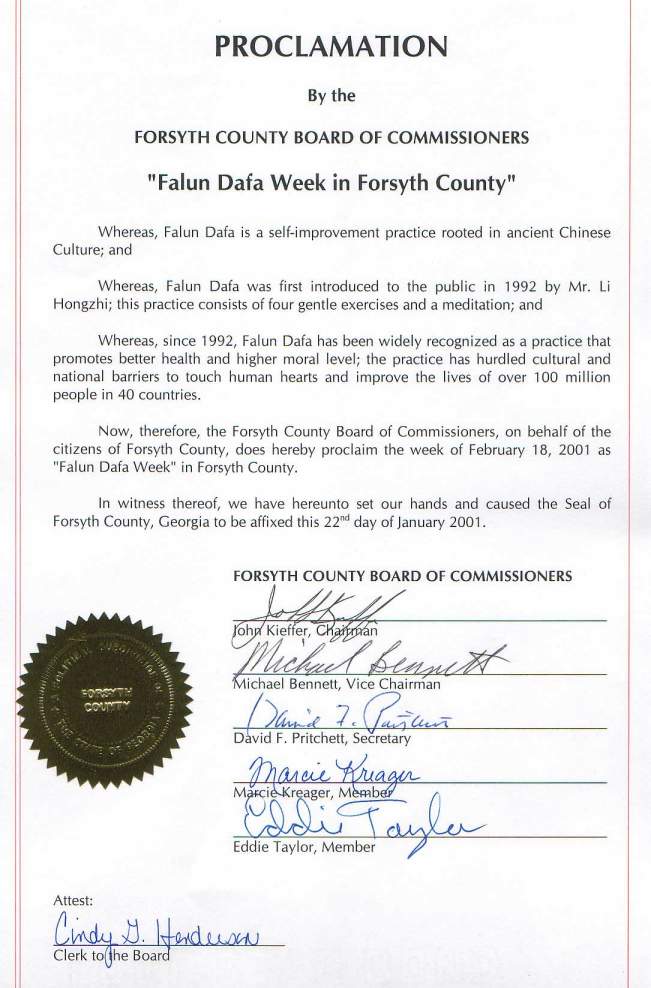 PROCLAMATION
By the
FORSYTH COUNTY BOARD OF COMMISSIONERS
"Falun Dafa Week in Forsyth County"
Whereas, Falun Dafa is a self-improvement practice rooted in ancient Chinese
Culture; and
Whereas, Falun Dafa was first introduced to the public in 1992 by Mr. Li
Hongzhi; this practice consists of four gentle exercises and a meditation; and
Whereas, since 1992, Falun Dafa has been widely recognized as a practice that
promotes better health and higher moral level; the practice has hurdled cultural and
national barriers to touch human hearts and improve the lives of over 100 million
people in 40 countries.
Now, therefore, the Forsyth County Board of Commissioners, on behalf of the
citizens of Forsyth County, does hereby proclaim the week of February 18, 2001 as
"Falun Dafa Week" in Forsyth County.
In witness thereof, we have hereunto set our hands and caused the Seal of
Forsyth County, Georgia to be affixed this 22nd day of January 2001.
FORSYTH COUNTY BOARD OF COMMISSIONERS
John Kieffer, Chairman
Michael Bennett
Michael Bennett, Vice Chairman
David F. Pritchett, Secretary
Marcie Kreager
Marcie Kreager, Member
Eddie Taylor
Eddie Taylor, Member
A POLITICAL SUBDIVISION OF
FORSYTH
COUNTY
THE STATE OF GEORGIA
Attest:
Cindy G. Henderson
Clerk to the Board